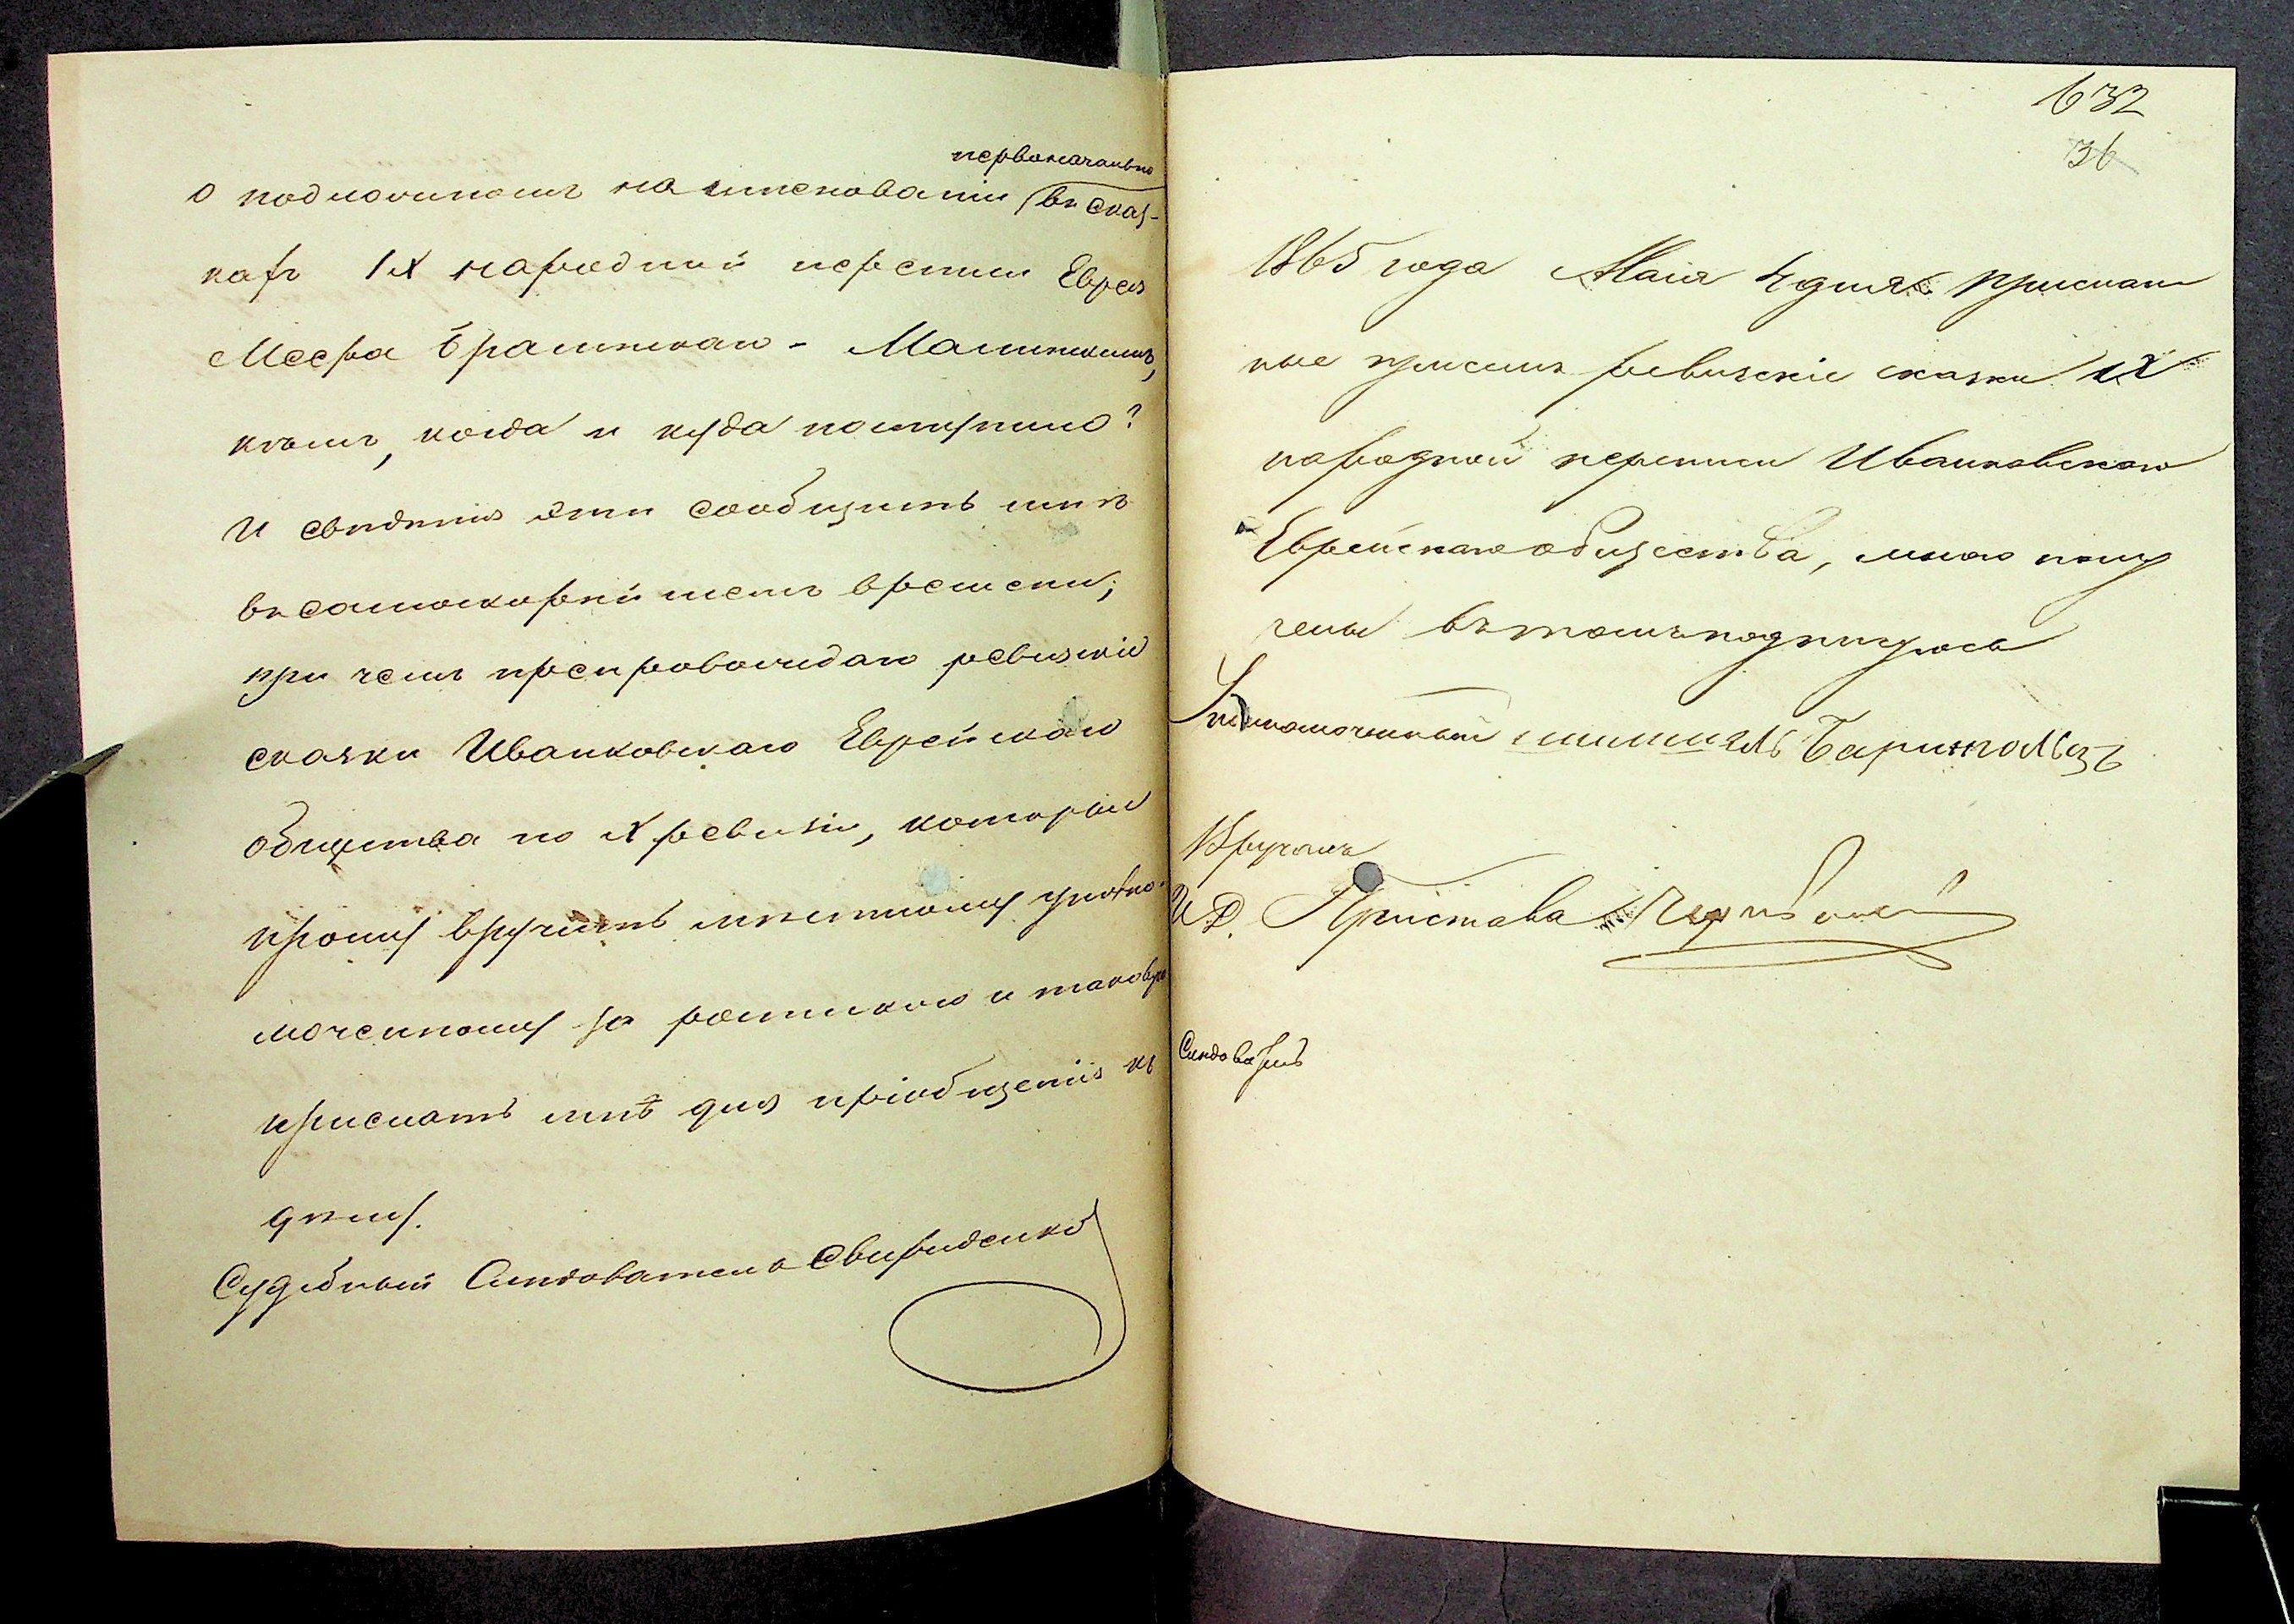 первоначально
о подложномъ наименованіи въ сказ-
кахъ IX народной переписи Еврея
Меера Брашнскаго - Машнскимъ,
кѣмъ, когда и куда поступило?
И свѣдѣнія эти сообщить мнѣ
въ самоскорѣйшемъ времени;
при чемъ препровождаю ревизскіе
сказки Иванковскаго Еврейскаго
общества по IX ревизіи, которыя
прошу вручить мѣстному уполно-
моченному за роспискою и таковую
прислать мнѣ для пріобщенія къ
дѣлу.
Судебный Слѣдователь Свириденко
632
36
1865 года Маія 4 дня прислан
ные при семъ ревизскіе сказки IX
народной переписи Иванковскаго
Еврейскаго общества, мною полу
чены въ томъ подписуюсь
Уполномоченный
Вручилъ
И Д. Пристава
Слѣдователь